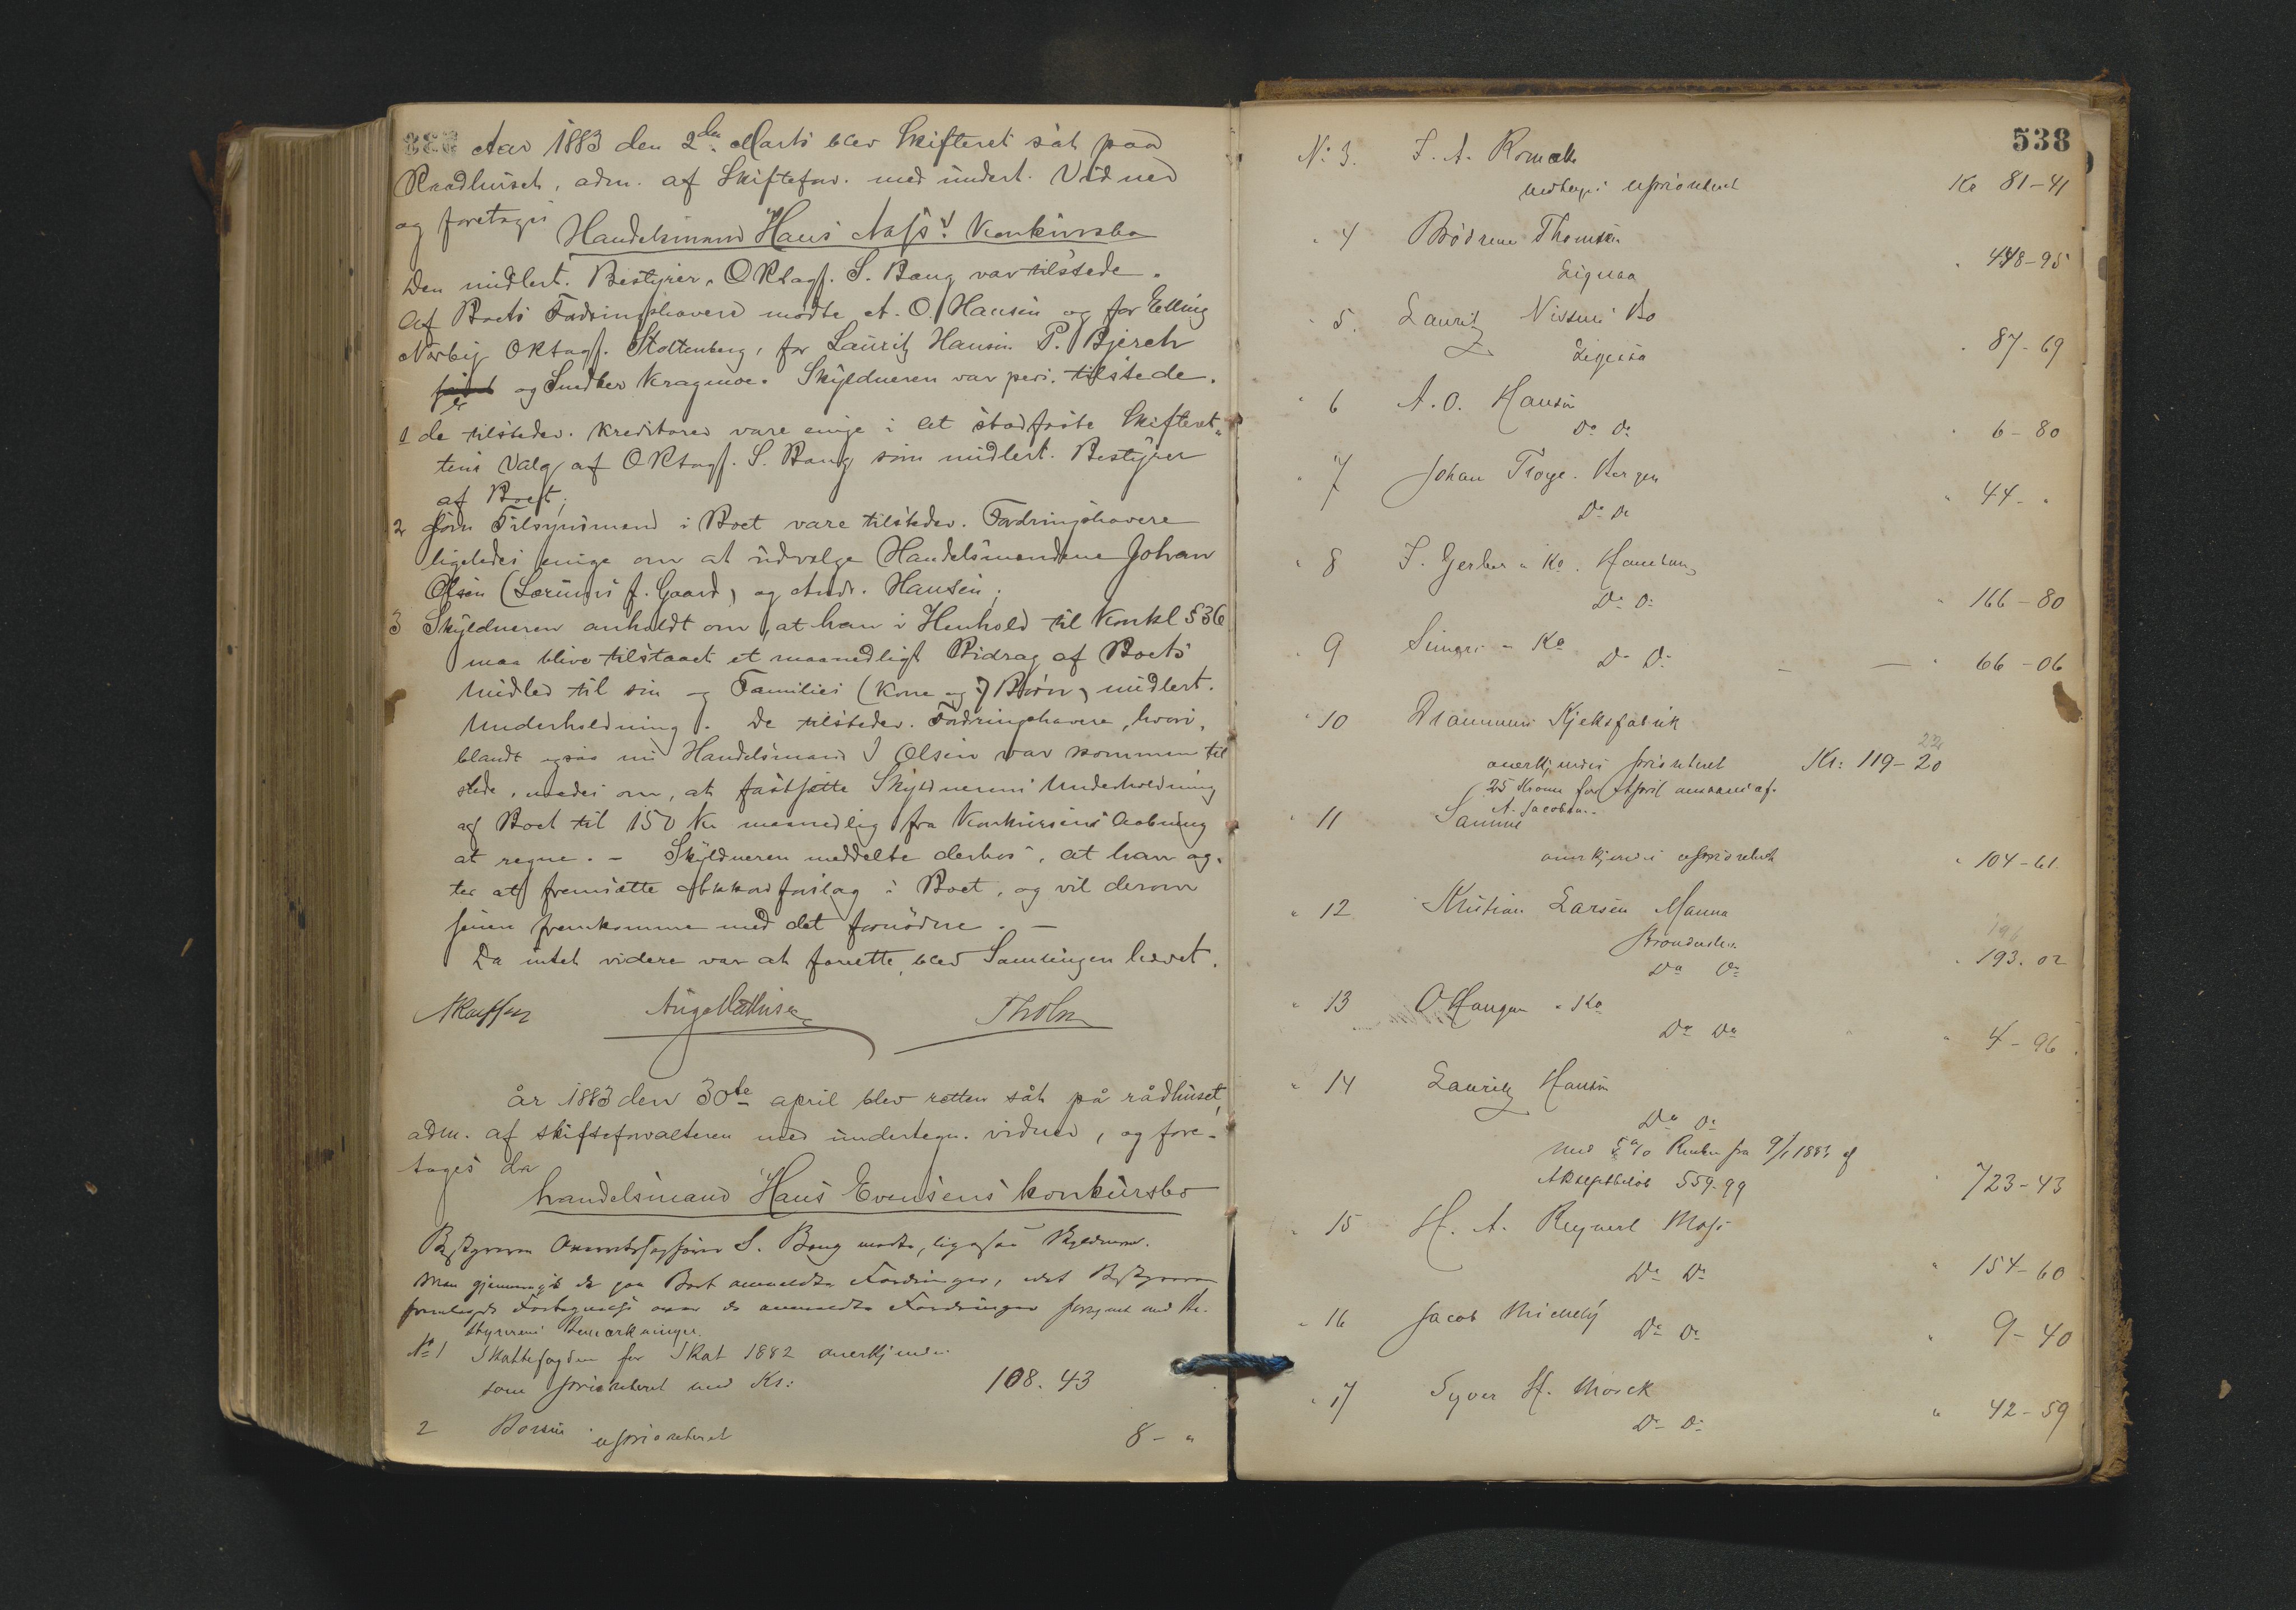 Aar 1883 den 2den Marts blev Skifteret sat paa
Raadhuset, adm. af Skiftefov. med undert. Vidner
og foretages
Handelsmand Hans Konkursbo
Den midlert. Bestyrer, ORsagf. S. Bang var tilstede.
Af Boets Fordringshavere mødte A. O. Hansen og for Elling
Nørbÿ ORsagf. Stoltenberg, for Lauritz Hansen P. Bjerch
og Snedker Kragmoe. Skyldneren var pers. tilstede.
1 de tilstedev. Kreditorer vare enige i at stadfæste Skifteret-
tens Valg af ORsagf. S. Bang som midlert. Bestyrer
af Boet;
2 som Tilsynsmænd i Boet vare tilstedev. Fordringshavere
ligeledes enige om at udvælge Handelsmændene Johan
Olsen f. Gaard) og Andr. Hansen;
3 Skyldneren anholdt om, at han i Henhold til Konkl § 36
maa blive tilstaaet et maanedligt Bidrag af Boets
Midler til sin og Families (Kone og 7 Børn) midlert.
Underholdning. De tilstedev. Fordringshavere, hvori-
blandt ogsaa nu Handelsmand J Olsen var kommen til
stede, enedes om, at fastsætte Skyldnerens Underholdning
af Boet til 150 Kr maanedlig fra Konkursens Aabning
at regne. – Skyldneren meddelte derhos, at han ag-
ter at fremsætte Akkordforslag i Boet, og vil derom
senere fremkomme med det fornødne. –
Da intet videre var at forrette, blev Samlingen hævet.
Tholn
år 1883 den 30te april blev retten sat på rådhuset,
adm. af skifteforvalteren med undertegn. vidner, og fore-
tages da
handelsmand Hans Evensens konkursbo
Bestyreren Overretssagfører S. Bang mødte, ligesaa Skyldneren.
Man gjennemgik de paa Boet anmeldte Fordringer, idet Bestyreren
fremlagde Fortegnelse over de anmeldte Fordringer forsynet med Be-
styrerens Bemærkninger.
No 1 Skattefogden for Skat 1882 anerkjendes
som prioriteret med Kr: 108. 43
2 uprioriteret 8 – "
538
No 3. J. A.
uprioriteret Kr 81-41
" 4 Brödrene Thomsen
Ligesaa " 448-95
" 5. Lauritz Nissens Bo
Ligesaa " 87-69
" 6 A. O. Hansen
Do Do " 6-80
" 7 Johan Troye. Bergen
Do Do " 44- "
" 8 J. Gerber & Ko.
Do Do " 166-80
" 9 & Ko
Do Do – — " 66-06
" 10 Drammens Kjeksfabrik
anerkjendes prioriteret Kr: 119-20
25 Kroner for April
A. Jacobsen.
" 11 Samme
anerkjendes uprioriteret " 104-61.
" 12 Kristian Larsen Manna
Do Do " 193. 02
" 13 O Haugan & Ko
Do Do " 4-96.
" 14 Lauritz Hansen
Do Do
med 5 % Renter fra 9/1 1883 af
Akseptbeløb 559-99 " 723-43
" 15 H. A. Reynert Moss
Do Do " 154-60
" 16 Jacob Michelÿ
Do Do " 9-40
" 17 Syver H. Morek
Do Do " 42-59